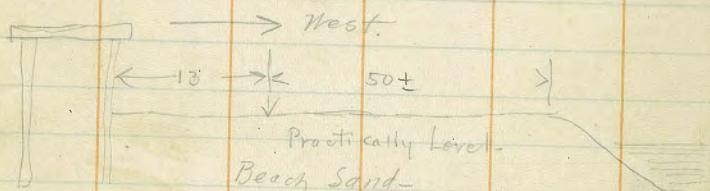 West.
13 50±
Practically Level.
Beach Sand-